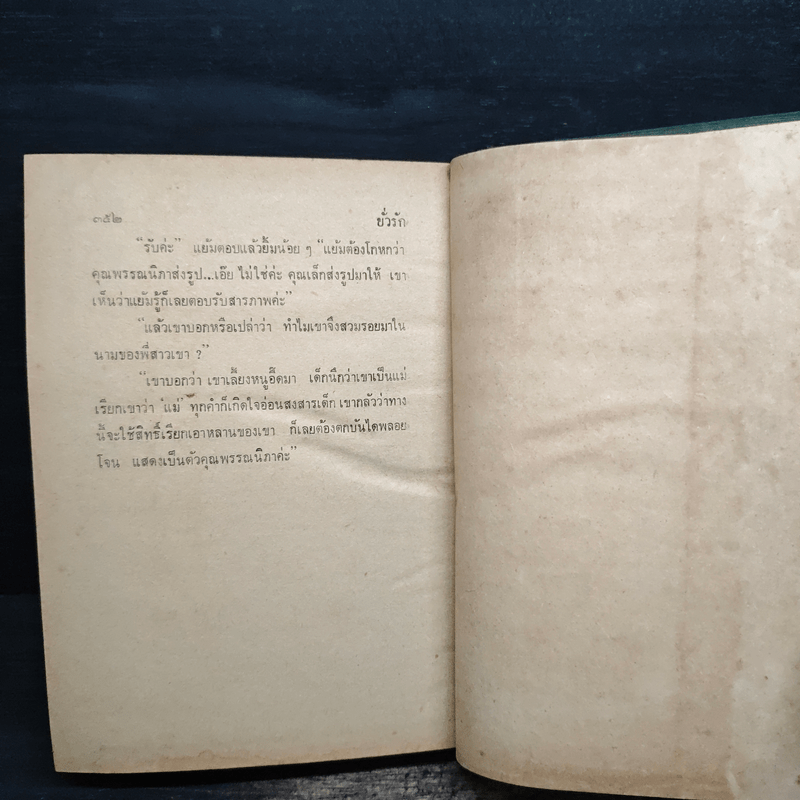 ๓๕๒ ขั่วรัก
“รับค่ะ” แย้มตอบแล้วยิ้มน้อย ๆ “แย้มต้องโกหกว่า
คุณพรรณนิภาส่งรูป...เอ๊ย ไม่ใช่ค่ะ คุณเล็กส่งรูปมาให้ เขา
เห็นว่าแย้มรู้ก็เลยตอบรับสารภาพค่ะ”
“แล้วเขาบอกหรือเปล่าว่า ทำไมเขาจึงสวมรอยมาใน
นามของพี่สาวเขา ?”
“เขาบอกว่า เขาเลี้ยงหนูอี๊ดมา เด็กนึกว่าเขาเป็นแม่
เรียกเขาว่า ‘แม่’ ทุกคำก็เกิดใจอ่อนสงสารเด็ก เขากลัวว่าทาง
นี้จะใช้สิทธิ์เรียกเอาหลานของเขา ก็เลยต้องตกบันไดพลอย
โจน แสดงเป็นตัวคุณพรรณนิภาค่ะ”